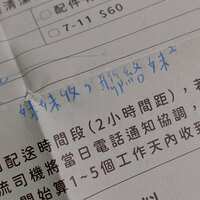 配件
○ 7-11 $60
妹妹收,聯絡妹²
配送時間段(2小時間距),若
流司機將當日電話通知協調,
開始算1~5個工作天內收到